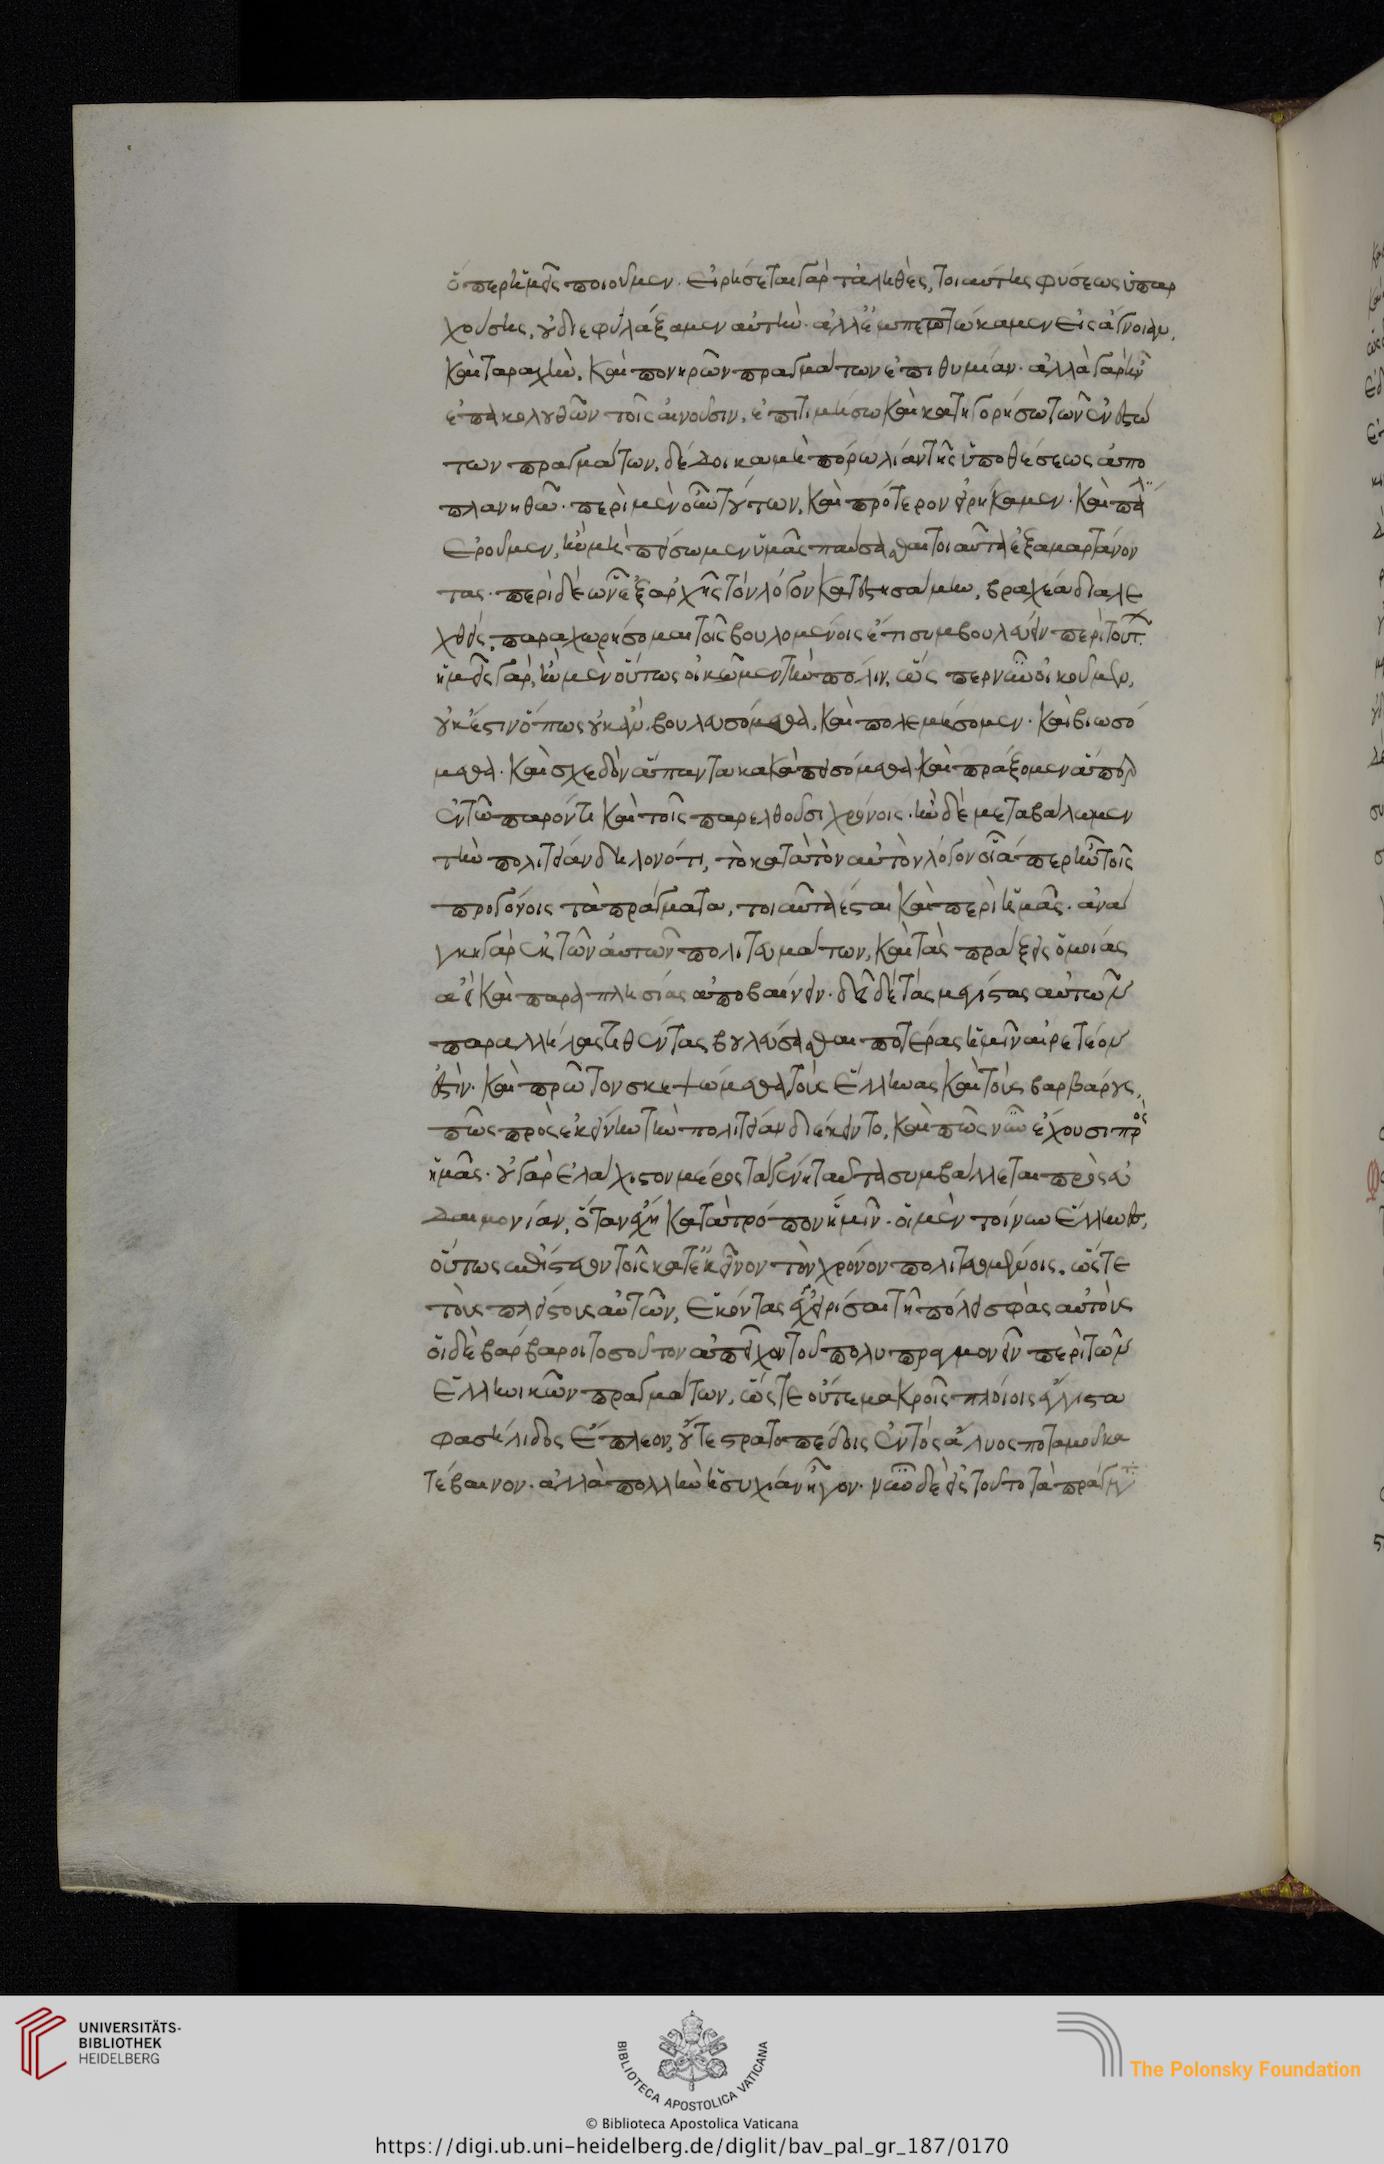 ὅπερ ἡμεῖς ποιοῦμεν. εἰρήσεται γὰρ τἀληθὲς, τοιαύτης φύσεως ὑπαρ
χούσης, οὐ διεφυλάξαμεν αὐτὴν. ἀλλ' ἐμπεπτώκαμεν εἰς ἄγνοιαν,
καὶ ταραχὴν, καὶ πονηρῶν πραγμάτων ἐπιθυμίαν. ἀλλὰ γὰρ ἢν
ἐπακολουθῶν τοῖς ἐνοῦσιν, ἐπιτιμήσω καὶ κατηγορήσω τῶν ἐνεστώ
των πραγμάτων, δέδοικα μὴ πόρω λίαν τῆς ὑποθέσεως ἀπο
πλανηθῶ. περὶ μὲν οὖν τούτων, καὶ πρότερον εἰρήκαμεν. καὶ πάλιν
ἐροῦμεν, ἢν μὴ πείσωμεν ὑμᾶς παύσασθαι τοιαῦτα ἐξαμαρτάνον
τας. περὶ δὲ ὧν ἐξ ἀρχῆς τὸν λόγον κατεστησάμην, βραχέα διαλε
χθεὶς, παραχωρήσομαι τοῖς βουλομένοις ἔτι συμβουλεύειν περὶ τούτ.
ἡμεῖς γὰρ, ἢν μὲν οὕτως οἰκῶμεν τὴν πόλιν, ὥσπερ νῦν οἰκοῦμεν,
οὐκ ἔστιν ὅπως οὐ καὶ βουλευσόμεθα, καὶ πολεμήσομεν. καὶ βιωσό
μεθα. καὶ σχεδὸν ἅπαντα κακὰ πεισόμεθα καὶ πράξομεν ἅπερ
ἐν τῶ παρόντι καὶ τοῖς παρελθοῦσι χρόνοις. ἢν δὲ μεταβάλωμεν
τὴν πολιτείαν δηλονότι, τὸ κατὰ τὸν αὐτὸν λόγον οἷάπερ ἦν τοῖς
προγόνοις τὰ πράγματα, τοιαῦτα ἔσται καὶ περὶ ἡμᾶς. ἀνά
γκη γὰρ ἐκ τῶν αὐτῶν πολιτευμάτων, καὶ τὰς πράξεις ὁμοίας
ἀεὶ καὶ παραπλησίας ἀποβαίνειν. δεῖ δὲ τὰς μεγίστας αὐτῶν
παραλλήλας τεθέντας βουλεύσασθαι ποτέρας ἡμῖν αἱρετέον
ἐστίν. καὶ πρῶτον σκεψώμεθα τοὺς Ἕλληνας καὶ τοὺς βαρβάρους,
πῶς πρὸς ἐκείνην τὴν πολιτείαν διέκειντο, καὶ πῶς νῦν ἔχουσι πρὸς
ἡμᾶς. οὐ γὰρ ἐλάχιστον μέρος τὰ γένη ταῦτα συμβάλλεται πρὸς εὐ
δαιμονίαν, ὅταν ἔχη κατὰ τρόπον ἡμῖν. οἱ μὲν τοίνυν Ἕλληνες,
οὕτως ἐπίστευον τοῖς κατ' ἐκεῖνον τὸν χρόνον πολιτευομένοις, ὥστε
τοὺς πλείστους αὐτῶν, ἑκόντας ἐγχειρίσαι τῆ πόλει σφᾶς αὐτοὺς
οἱ δὲ βάρβαροι τοσοῦτον ἀπεῖχον τοῦ πολυπραγμονεῖν περὶ τῶν
Ἑλληνικῶν πραγμάτων, ὥστε οὔτε μακροῖς πλοίοις ἐπὶ τα
φασήλιδος ἔπλεον, οὔτε στρατοπέδοις ἐντὸς ἅλυος ποταμοῦ κα
τέβαινον. ἀλλὰ πολλὴν ἡσυχίαν ἦγον. νῦν δὲ εἰς τοῦτο τὰ πράγμ
UNIVERSITÄTS-
BIBLIOTHEK
HEIDELBERG
BIBLIOTECA APOSTOLICA VATICANA
The Polonsky Foundation
© Biblioteca Apostolica Vaticana
https://digi.ub.uni-heidelberg.de/diglit/bav_pal_gr_187/0170